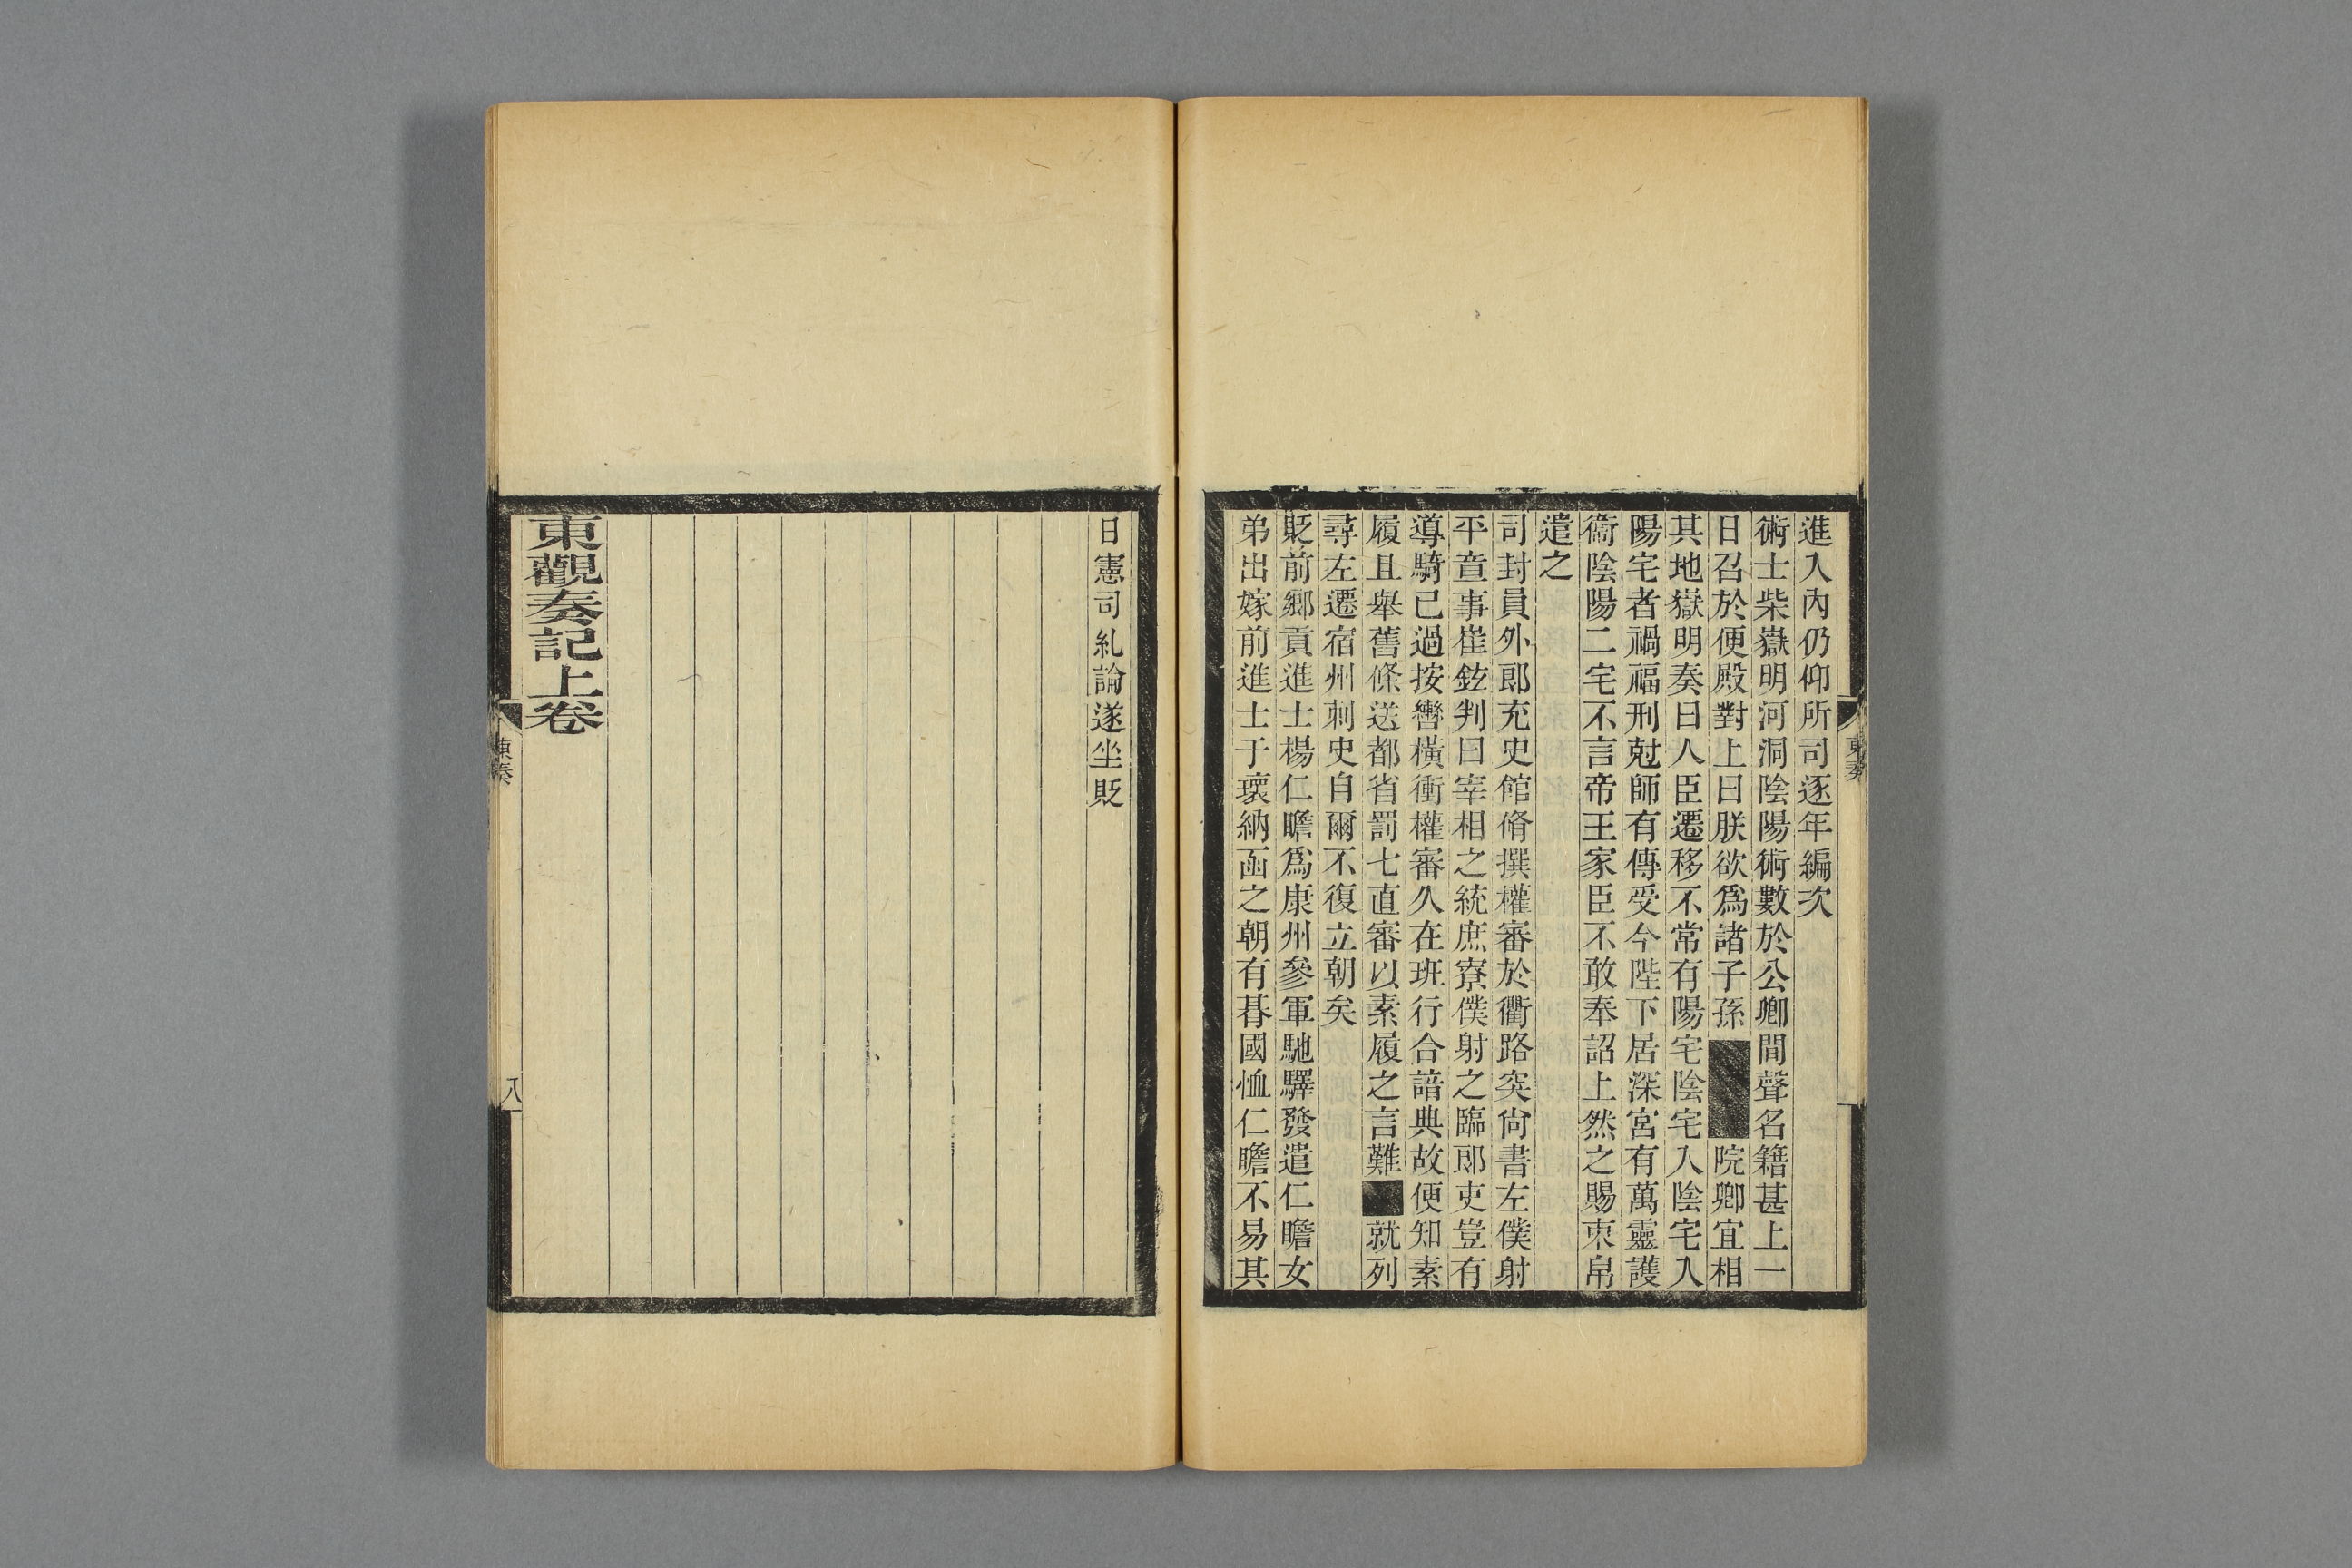 進入內仍仰所司逐年編次
術士柴嶽明河洞陰陽術數於公卿間聲名籍甚上一
日召於便殿對上曰朕欲爲諸子孫■■院卿宜相
其地嶽明奏曰人臣遷移不常有陽宅陰宅入陰宅入
陽宅者禍福刑尅師有傳受今陛下居深宮有萬靈護
衞陰陽二宅不言帝王家臣不敢奉詔上然之賜束帛
遣之
司封員外郎充史館脩撰權審於衢路突尙書左僕射
平章事崔鉉判曰宰相之統庶寮僕射之臨郎吏豈有
導騎已過按轡橫衝權審久在班行合諳典故便知素
履且舉舊條送都省罰七直審以素履之言難■就列
尋左遷宿州刺史自爾不復立朝矣
貶前鄉貢進士楊仁瞻爲康州參軍馳驛發遣仁瞻女
弟出嫁前進士于瓌納函之朝有朞國恤仁瞻不易其
東奏
日憲司糺論遂坐貶
東觀奏記上卷
東奏
八